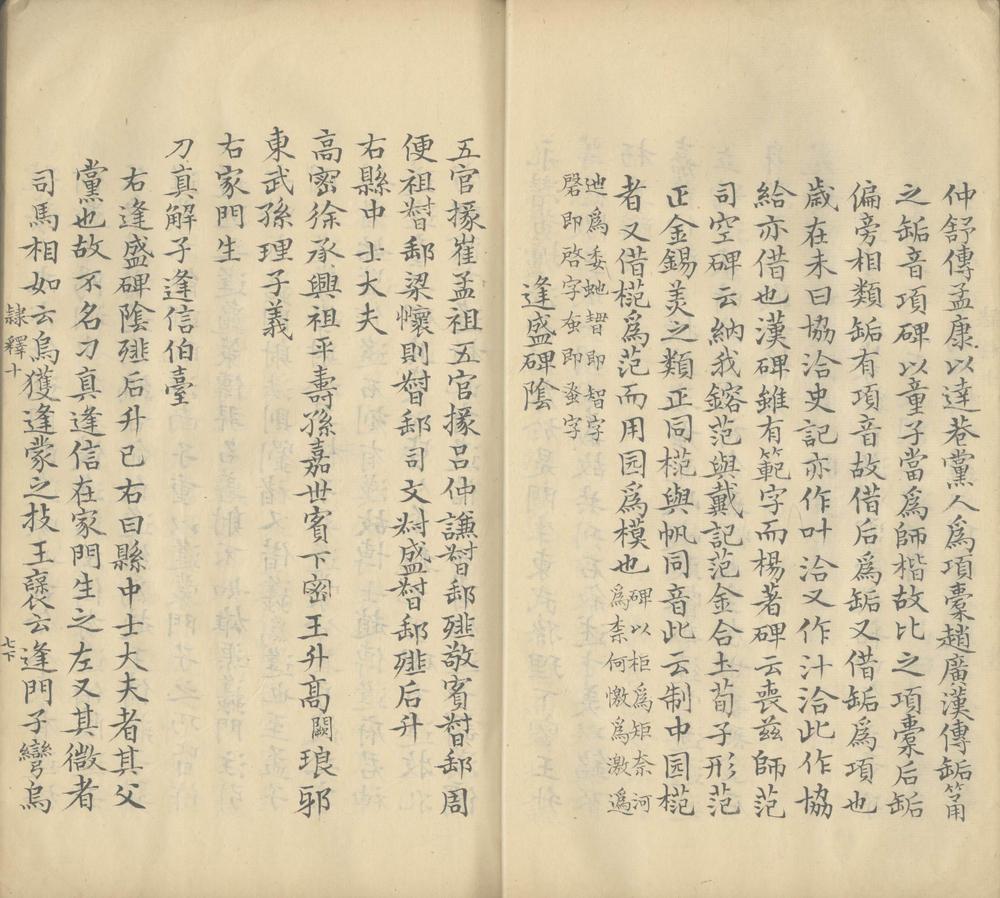 仲舒傳孟康以達巷黨人為項橐趙廣漢傳缿筩
之缿音項碑以童子當為師楷故比之項橐后缿
偏旁相類缿有項音故借后為缿又借缿為項也
歳在未曰協洽史記亦作叶洽又作汁洽此作協
給亦借也漢碑雖有範字而楊著碑云喪兹師范
司空碑云納我鎔范與戴記范金合土荀子形范
正金錫美之類正同梔與帆同音此云制中园梔
者又借梔為范而用园為模也碑以柜為矩柰河為柰何憿為激遙
迆為委虵朁即智字䃈即啓字䖝即蚤字
逢盛碑陰
五官掾崔孟祖五官掾吕仲謙督郵䧳敬賓督郵周
便祖督郵梁懷則督郵司文尉盛督郵䧳后升
右縣中士大夫
高密徐承興祖平壽孫嘉世賓下密王升高闕琅邪
東武孫理子義
右家門生
刀真解子逢信伯臺
右逢盛碑陰䧳后升已右曰縣中士大夫者其父
黨也故不名刀真逢信在家門生之左又其微者
司馬相如云烏獲逢蒙之技王襃云逢門子彎烏
隸釋十
七下